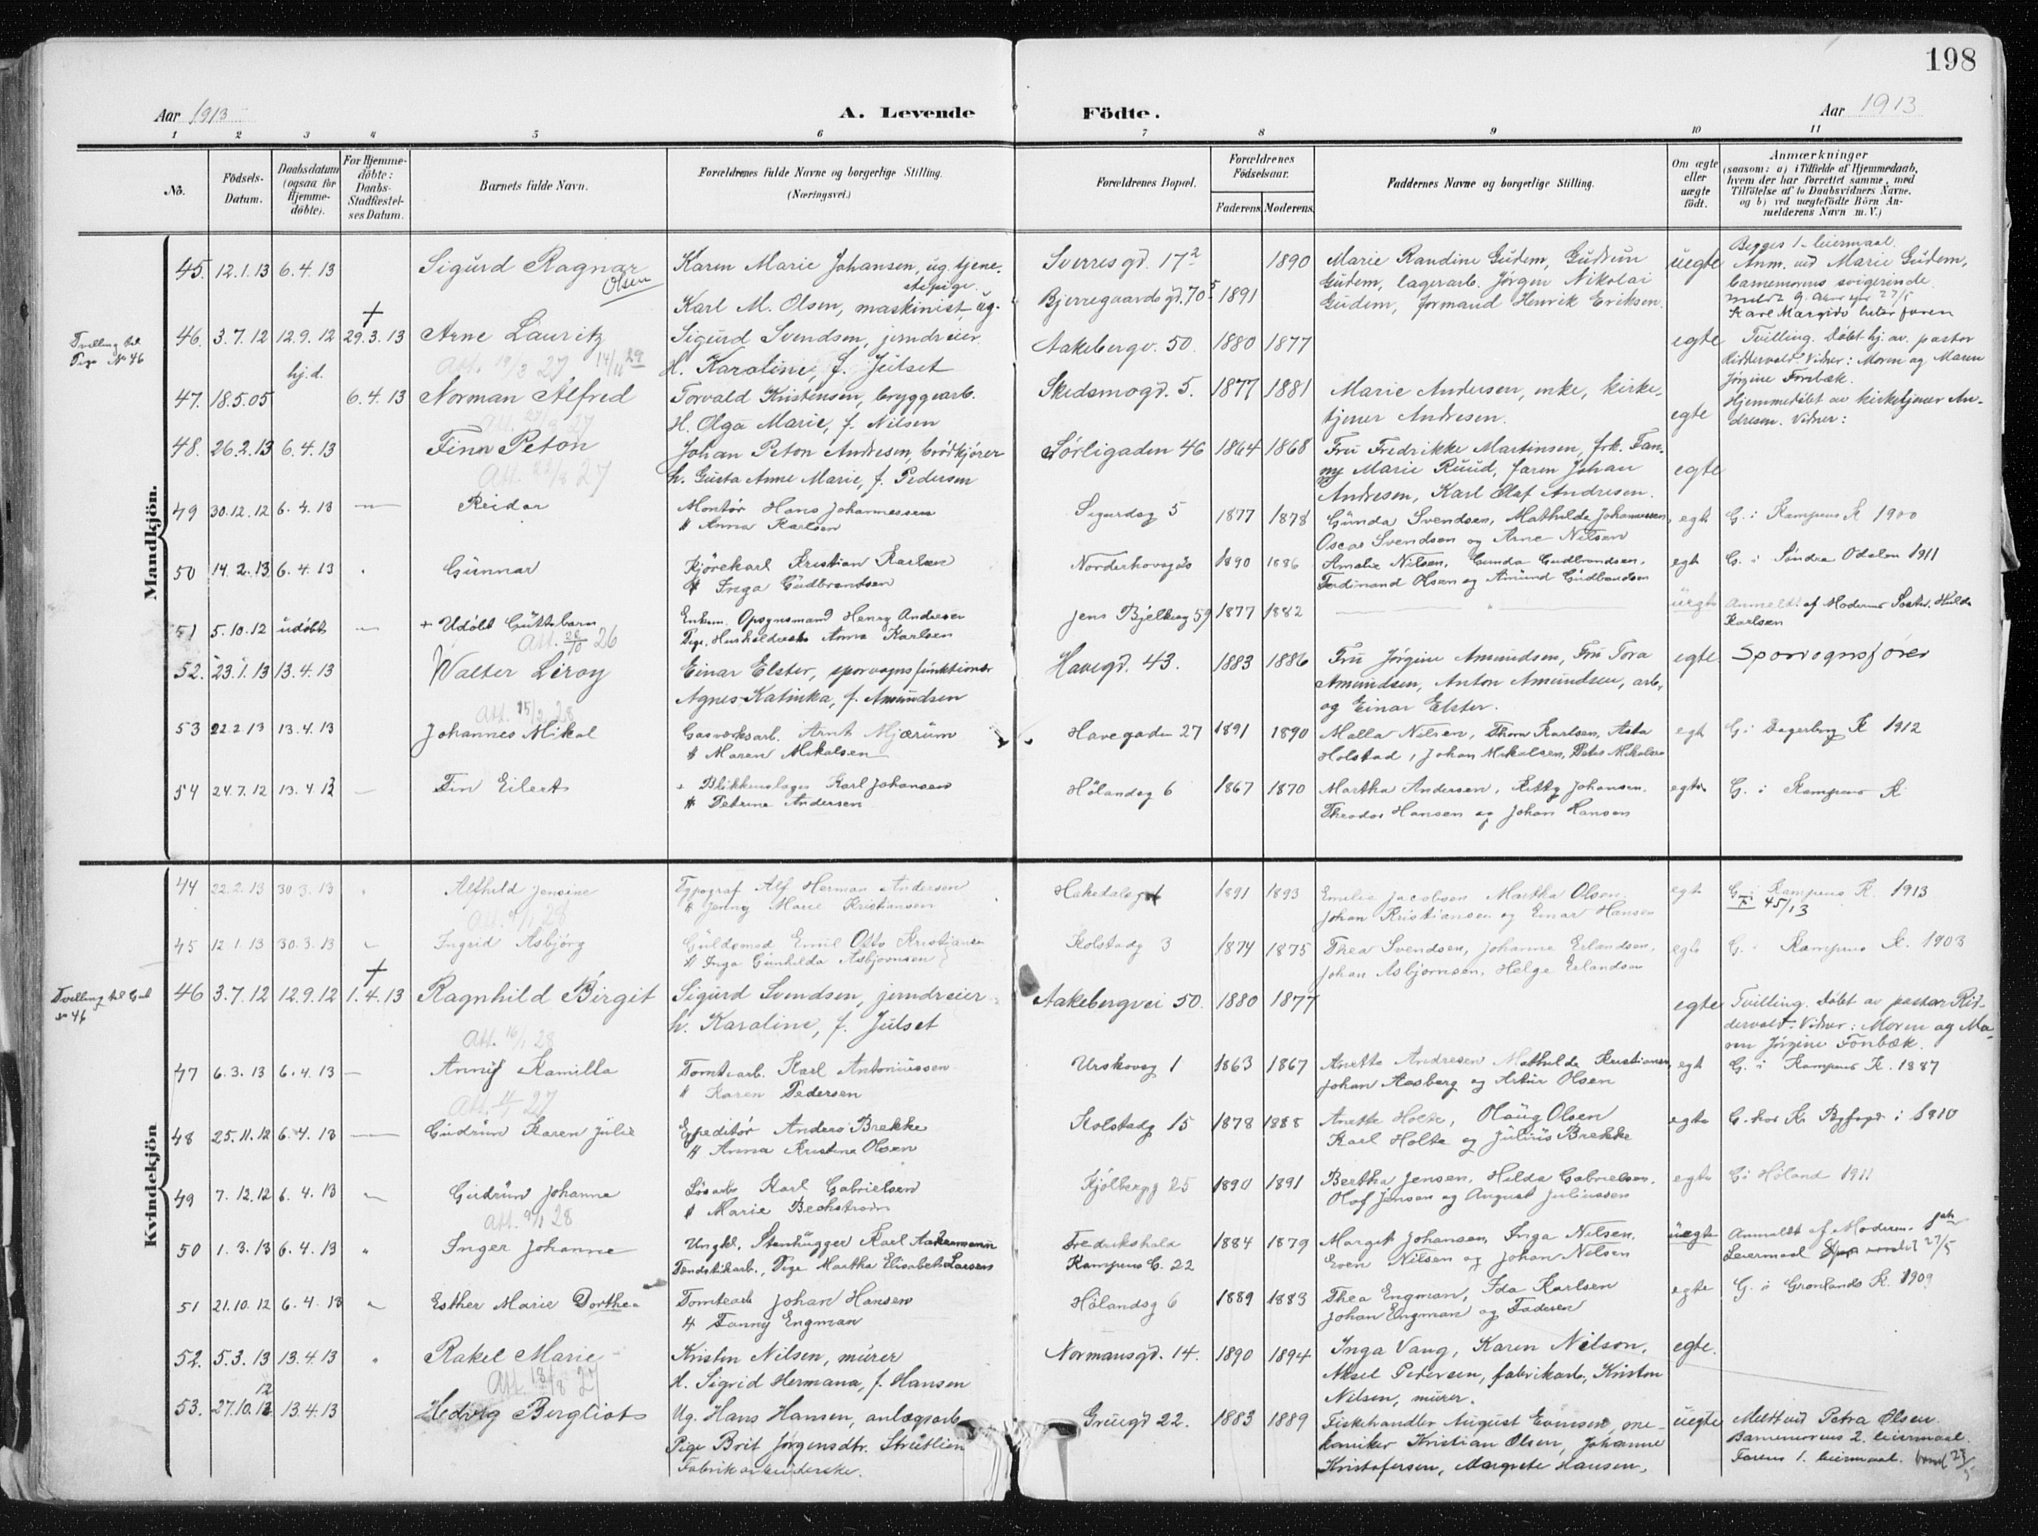 198
Aar 1913
A. Levende Födte.
Aar 1913
1 2 3 4 5 6 7 8 9 10 11
No.
Födsels-Datum.
Daabsdatum (ogsaa for Hjemme-döbte).
For Hjemme-döbte: Daabs-Stadfæstel-ses Datum.
Barnets fulde Navn.
Forældrenes fulde Navne og borgerlige Stilling.
(Næringsvei.)
Forældrenes Bopæl.
Forældrenes Födselsaar.
Faderens. Moderens.
Faddernes Navne og borgerlige Stilling.
Om ægte eller uægte födt.
Anmærkninger
(saasom: a) i Tilfælde af Hjemmedaab, hvem der har forrettet samme, med Tilföielse af to Daabsvidners Navne, og b) ved uægtefödte Börn An-melderens Navn m. V.)
Mandkjön.
45. 12.1.13 6.4.13 Sigurd Ragnar Karen Marie Johansen, ug. tjene- Sverresgd. 17² 1890 Marie Randine Gudem, Gudrun uegte Begges 1. leiermaal.
Olsen stepige. Gudem, lagerarb. Jørgen Nikolai Anm. ved Marie Gudem,
Karl M. Olsen, maskinist ug. Bjerregaardsgd. 70 1891 Gudem, formand Henrik Eriksen. barnemorens svigerinde.
Tvilling til Pige No 46
46. 3.7.12 12.9.12 29.3.13 Arne Lauritz Sigurd Svendsen, jerndreier Aakebergv. 50. 1880 1877 egte Tvilling. Døbt hj. av pastor
hj.d. H. Karoline, f. Julset Riddervold. Vidner: Moren og Maren
Jørgine Fonbæk.
47. 18.5.05 6.4.13 Norman Alfred Torvald Kristensen, bryggearb. Skedsmogd. 5. 1877 1881 Marie Andersen, enke, kirke- egte Hjemmedøbt av kirketjener An-
H. Olga Marie, f. Nilsen tjener Andresen. dresen. Vidner:
48. 26.2.13 6.4.13 Finn Peton Johan Peton Andresen, brødkjører Sørligaden 46 1864 1868 Fru Fredrikke Martinsen, frk. Fan-
Att. 27 h. Gusta Anne Marie, f. Pedersen ny Marie Ruud, faren Johan egte
Andresen, Karl Olaf Andresen.
49 30.12.12 6.4.13 — Reidar Montør Hans Johannessen Sigurdsg 5 1877 1878 Gunda Svendsen, Mathilde Johannessen, egt G. i Kampens K 1900
H Anna Karlsen Oscar Svendsen og Arne Nilsen
50 14.2.13 6.4.13 Gunnar Kjørekarl Kristian Karlsen 1890 1886 Amalie Nilsen, Gunda Gudbrandsen, egt G. i Søndre Odalen 1911
H Inga Gudbrandsen Ferdinand Olsen og Amund Gudbrandsen
51 5.10.12 udøbt — + Udøbt Guttebarn Enkem. Opsynsmand Henry Andresen Jens Bjelkesg 59 1877 1882 uegt Anmeldt af Moderens Søster, Hulda
Att. 28/10 26 Pige, Husholderske Anna Karlsen Karlsen
52. 23.1.13 13.4.13 Walter Leroy Einar Elster, sporvognsfunktionær Havegd. 43. 1883 1886 Fru Jørgine Amundsen, Fru Tora egte Sporvognsfører
Agnes Katinka, f. Amundsen Amundsen, Anton Amundsen, arb.,
og Einar Elster.
53 22.2.13 13.4.13 Johannes Mikal Gasverksarb. Arnt Mjærum Havegaden 27 1891 1890 Malla Nilsen, Thora Karlsen, Asta egt G. i K 1912
H Maren Mikalsen Holstad, Johan Mikalsen, Peter Mikalsen
54 24.7.12 13.4.13 — Fin Eilert Blikkenslager Karl Johansen Hølandsg 6 1867 1870 Martha Andersen, Kitty Johansen, egte G. i Kampens K
H Petrine Andersen Theodor Hansen og Johan Hansen
Kvindekjön
44 22.2.13 30.3.13 Alfhild Jensine Typograf Alf Herman Andersen Hakedalsg 1891 1893 Emilie Jacobsen Martha Olsen egt G. i Kampens K. 1913
H Jenny Marie Kristiansen Johan Kristiansen og Einar Hansen 45/13
45 12.1.13 30.3.13 Ingrid Asbjørg Guldsmed Emil Otto Kristiansen Kolstadg 3 1874 1875 Thea Svendsen, Johanne Erlandsen, egte G. i Kampens K. 1903
H Inga Gunhilda Asbjørnsen Johan Asbjørnsen, Helge Erlandsen
Tvilling til Gut No 46
46 3.7.12 12.9.12 1.4.13 Ragnhild Birgit Sigurd Svendsen, jerndreier Aakebergvei 50. 1880 1877 egte Tvilling. Døbt av pastor Rid-
Att. 16/1 28 h. Karoline, f. Julset dervold. Vidner: Moren og Ma-
ren Jørgine Fonbæk.
47 6.3.13 6.4.13 — Anny Kamilla Tomtearb. Karl Antoniussen Urskovsg 1 1863 1867 Anette Andresen Mathilde Kristiansen, egt G. i Kampens K. 1887
H Karen Pedersen Johan Aasberg og Artur Olsen
48 25.11.12 6.4.13 — Gudrun Karen Julie Expeditør Anders Brekke Kolstadg 15 1878 1888 Anette Holte, Olaug Olsen egte G. hos K. Byfogd i 1910
H Anna Kristine Olsen Karl Holte og Julius Brekke
49 7.12.12 6.4.13 Gudrun Johanne Løsarb Karl Gabrielsen Kjølbergg 25 1890 1891 Bertha Jensen, Hilda Gabrielsen, egte G. i Høland 1911
H Marie Bechstrøm Olaf Jensen og August Juliussen
50 1.3.13 6.4.13 Inger Johanne Ungkl. Stenhugger Karl Aakermann Fredrikshald 1884 1879 Margit Johansen, Inga Nilsen, uegte Anmeldt af Moderen.
Fyrstikarb., Pige Martha Elisabeth Larsen Kampens G. 22 Even Nilsen og Johan Nilsen Leiermaal 27/5
51 21.10.12 6.4.13 Esther Marie Dorthea Tomtearb Johan Hansen Hølandsg 6 1889 1883 Thea Engman, Ida Karlsen egte G. i Grønlands K. 1909
H Fanny Engman Johan Engman og Faderen
52. 5.3.13 13.4.13 Rakel Marie Kristen Nilsen, murer Normansgd. 14. 1890 1894 Inga Vang, Karen Nilson, egte.
H. Sigrid Hermana, f. Hansen Aksel Pedersen, fabrikarb., Kristen
Nilsen, murer.
53. 27.10.12 13.4.13 Hedvig Bergliot Ug. Hans Hansen, anlægsarb. Grüugd 22. 1883 1889 Fiskehandler August Evensen, me- uegte Meldt ved Petra Olsen.
Pige Brit Jørgensdtr. Streitlien kaniker Kristian Olsen, Johanne Barnemorens 2. leiermaal.
Fabrikarbeiderske. Kristofersen, Margrete Hansen, Farens 1. leiermaal.